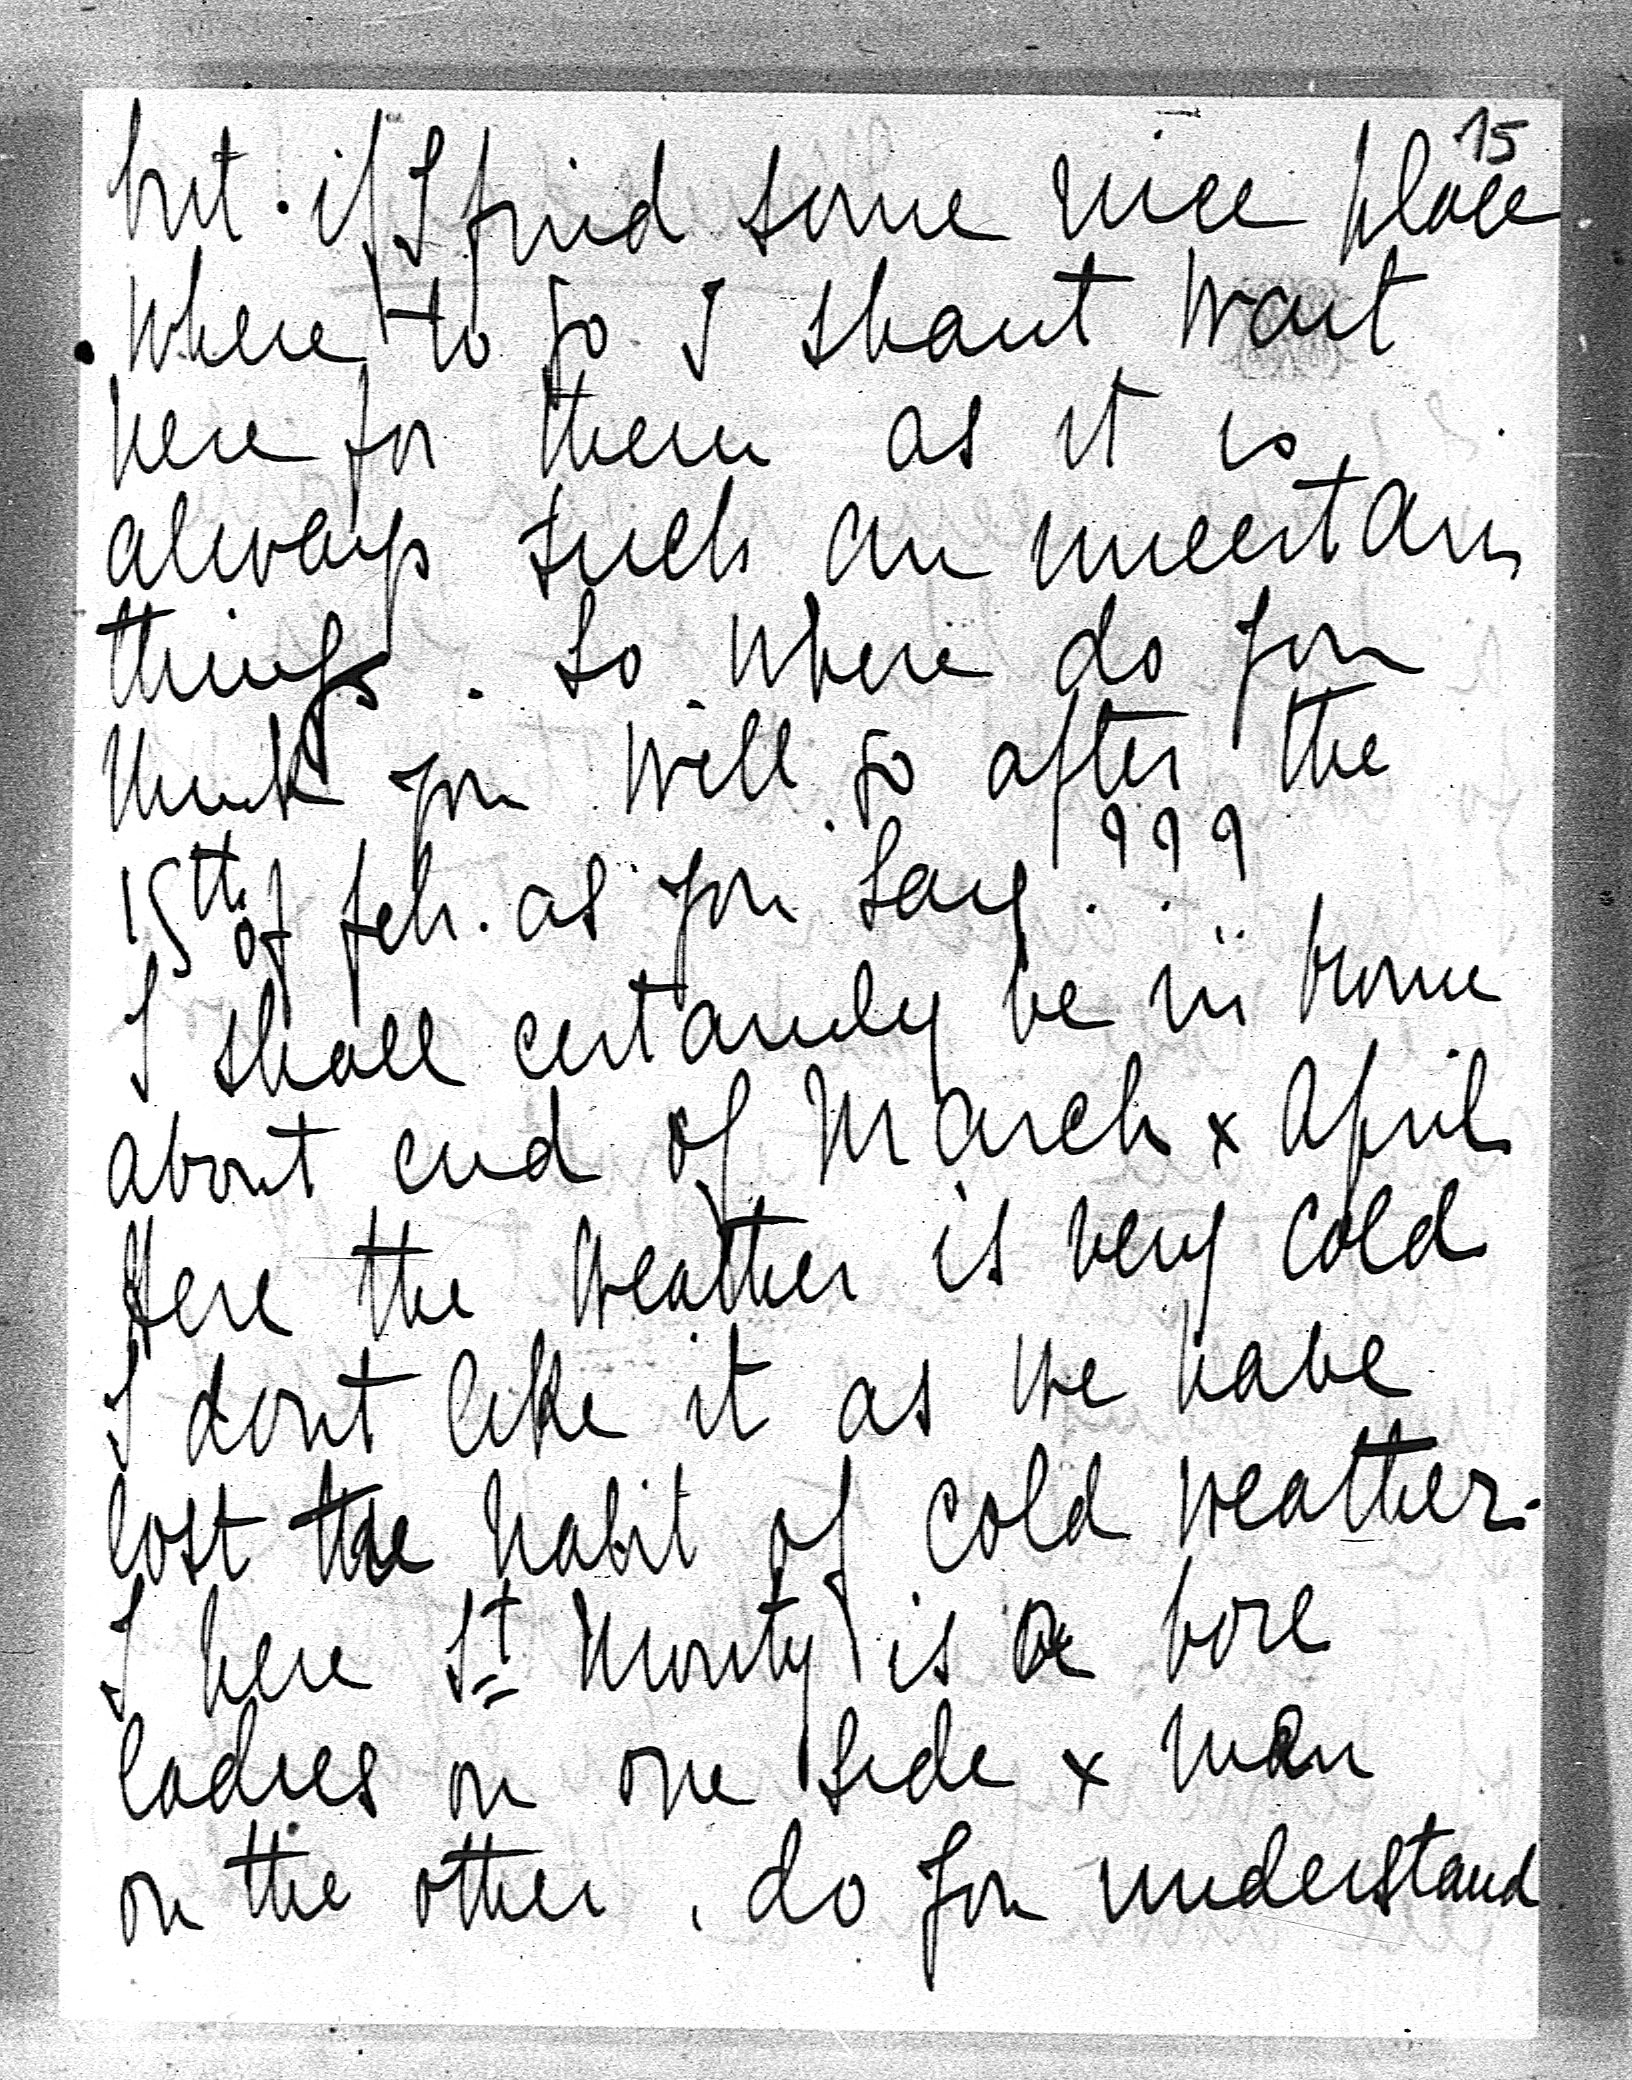 15
but. if I find some nice place
where to go I shant wait
here for them as it is
always such an uncertain
things. So where do you
think you will go after the
15th of feb. as you say ???
I shall certanely be in
about end of March x April
Here the weather is very cold
I dont like it as we have
lost the habit of cold weather.
I here St Mority is a bore
ladies on one side x man
on the other, do you understand